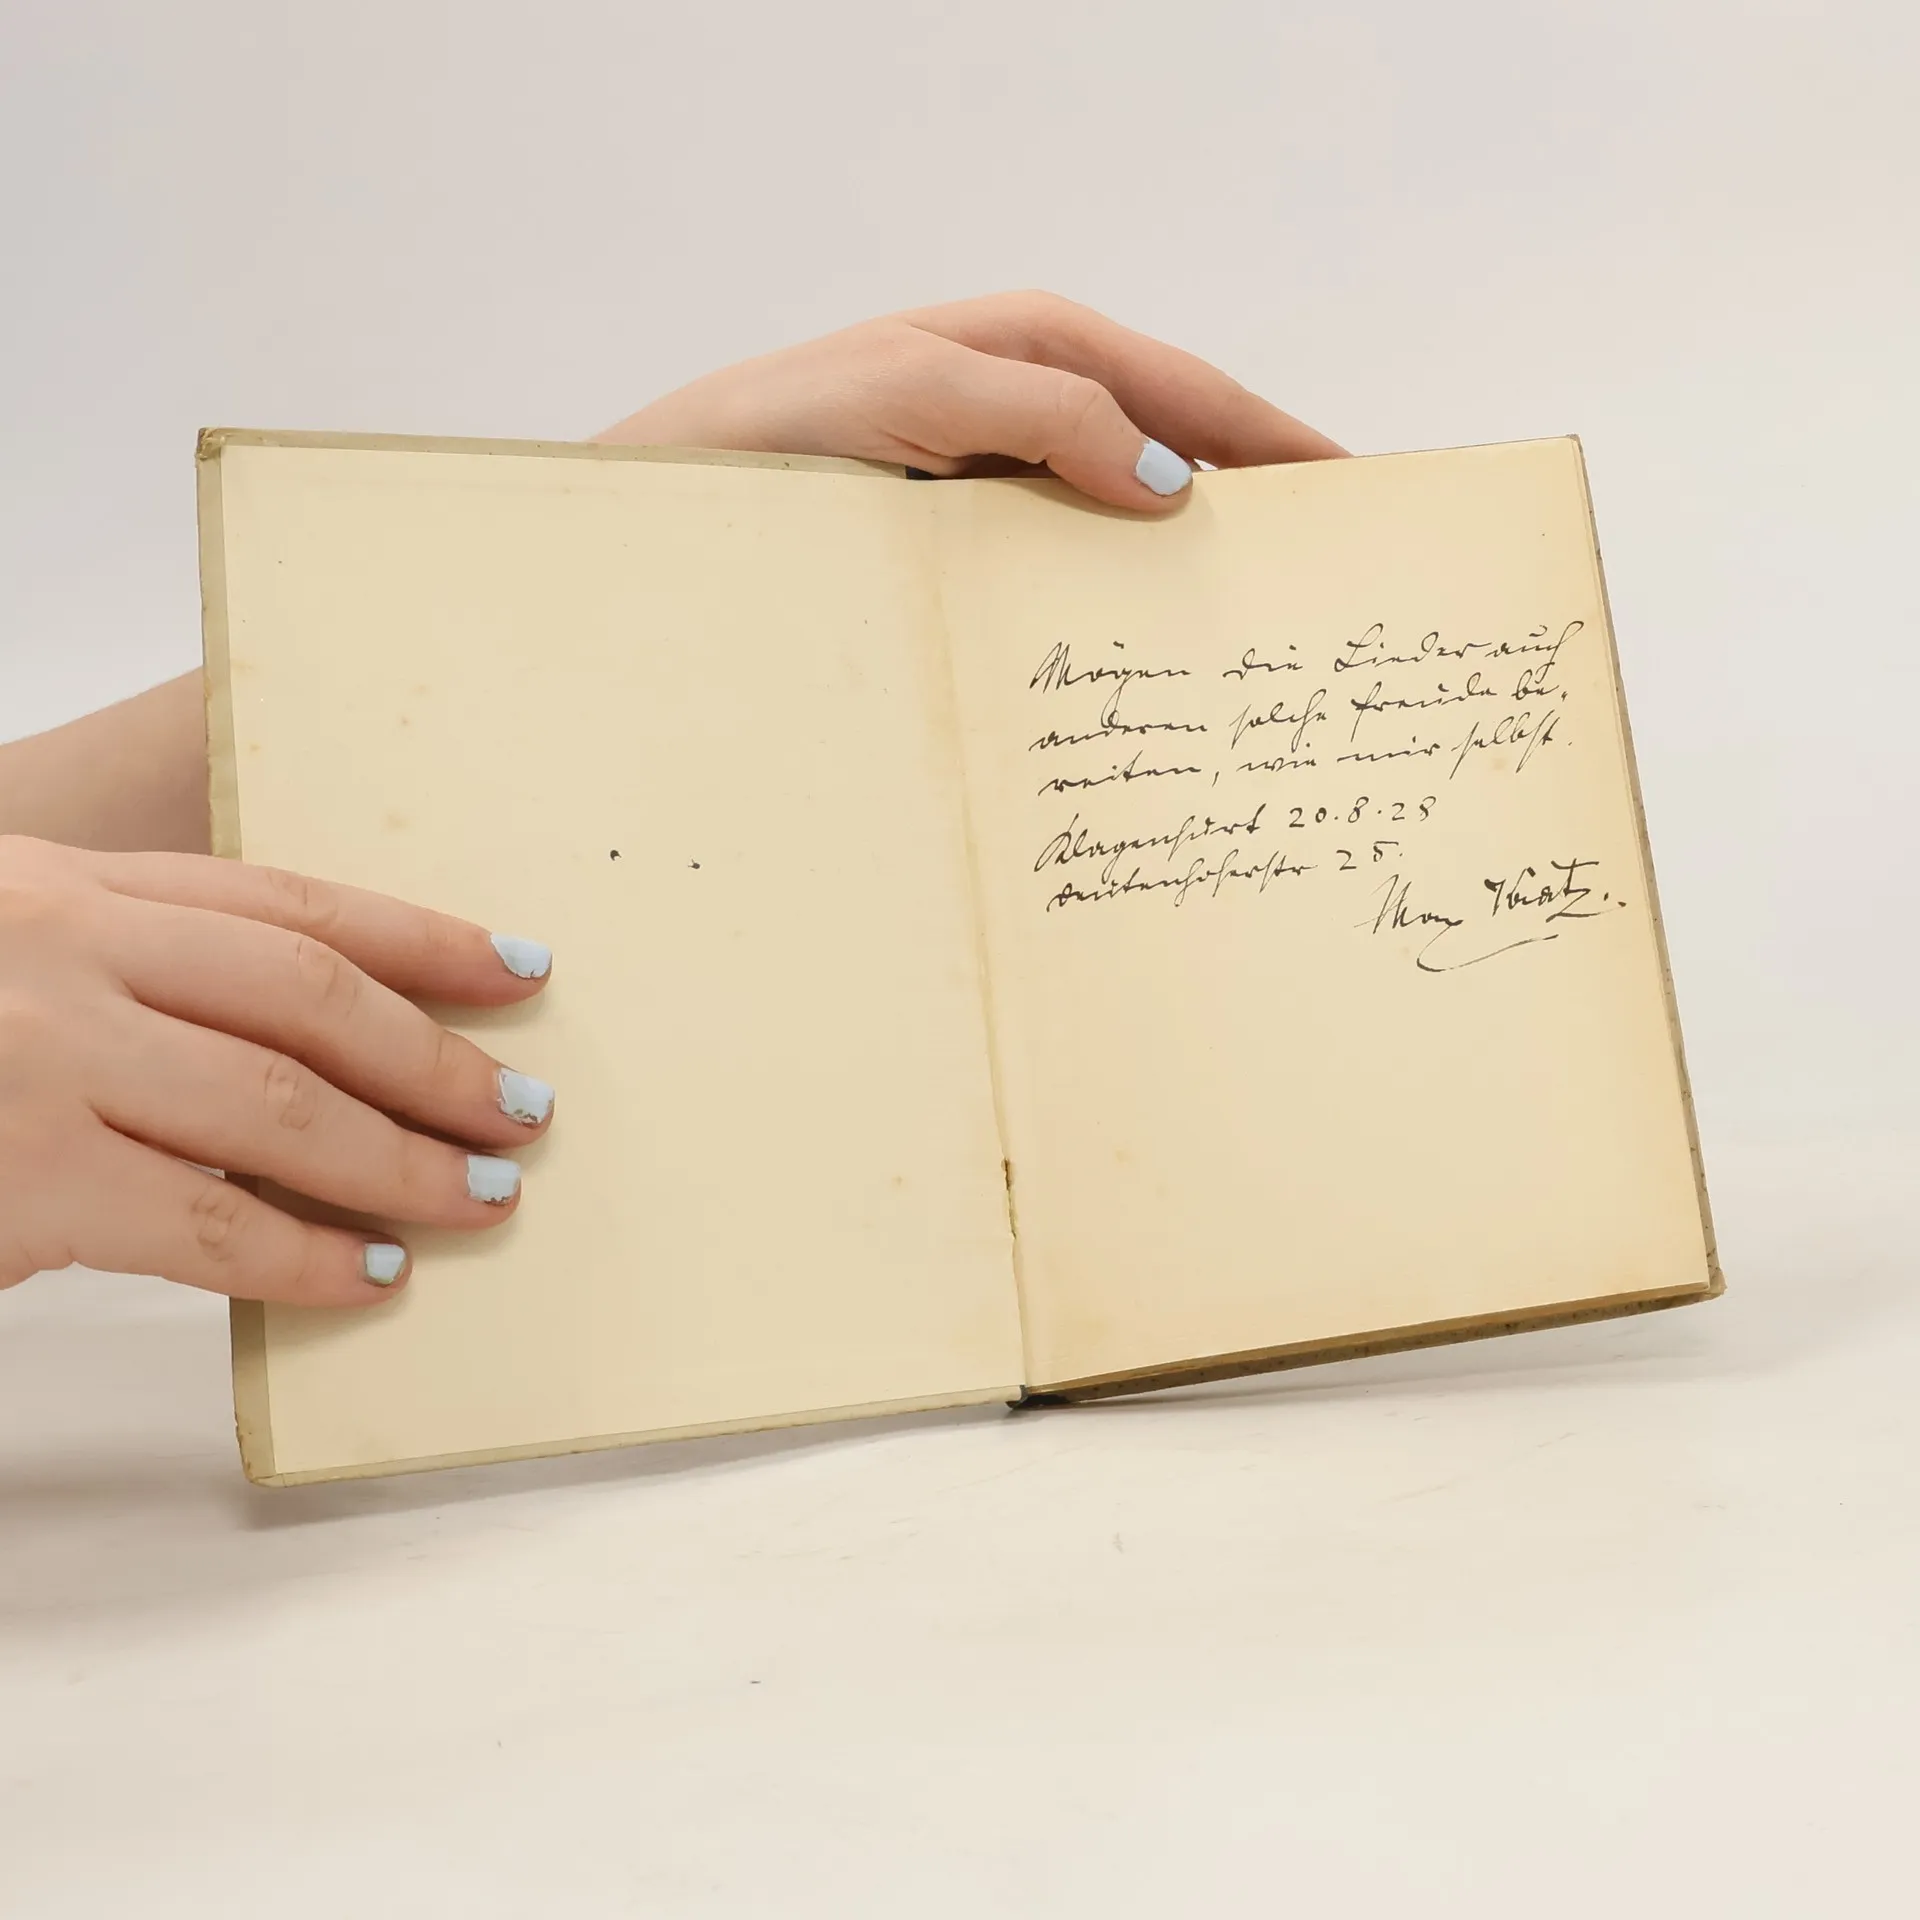 Mögen die Lieder auch
anderen solche Freude be-
reiten, wie mir selbst.
Klagenfurt 20.8.28
25.
Max